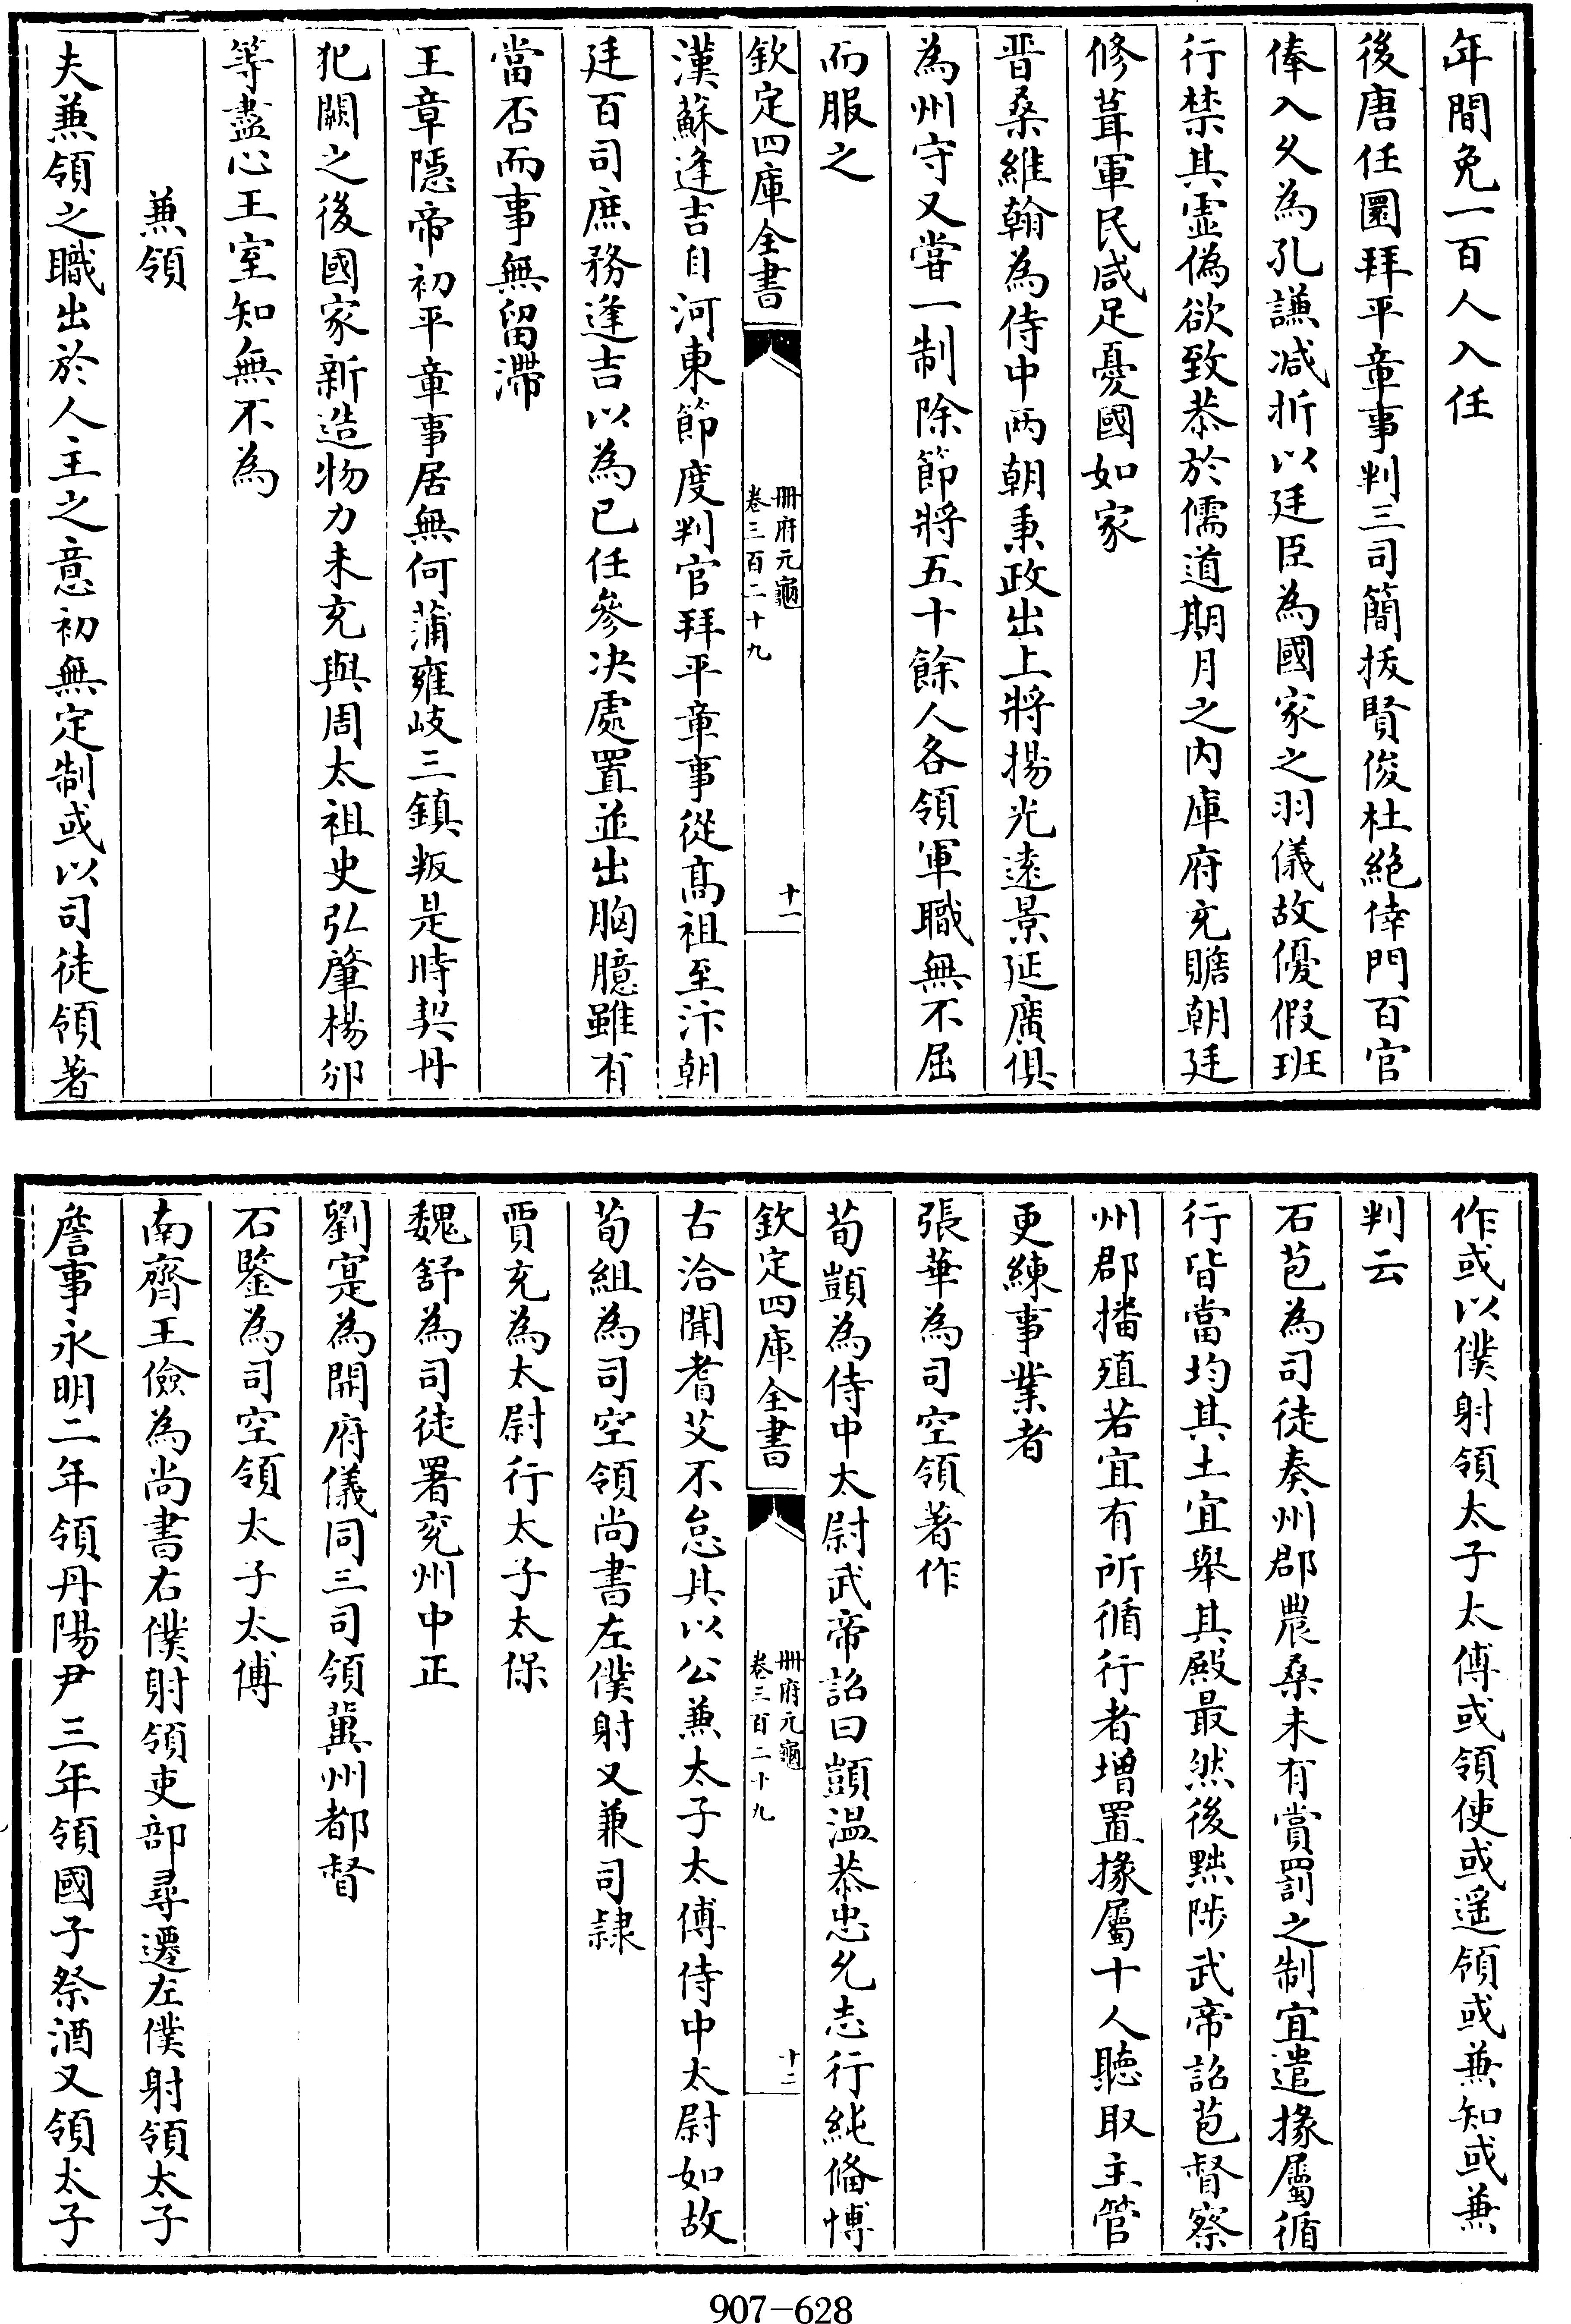 年間免一百人入任
後唐任圜拜平章事判三司簡拔賢俊杜絶倖門百官
俸入久為孔謙減折以廷臣為國家之羽儀故優假班
行禁其虛偽欲致恭於儒道期月之内庫府充贍朝廷
修葺軍民咸足憂國如家
晉桑維翰為侍中兩朝秉政出上將揚光遠景延廣俱
為州守又嘗一制除節將五十餘人各領軍職無不屈
而服之
欽定四庫全書
冊府元龜
卷三百二十九
十一
漢蘇逢吉自河東節度判官拜平章事從髙祖至汴朝
廷百司庶務逢吉以為已任參决處置並出胸臆雖有
當否而事無留滯
王章隱帝初平章事居無何蒲雍岐三鎮叛是時契丹
犯闕之後國家新造物力未充與周太祖史弘肇楊邠
等盡心王室知無不為
兼領
夫兼領之職出於人主之意初無定制或以司徒領著
作或以僕射領太子太傅或領使或遥領或兼知或兼
判云
石苞為司徒奏州郡農桑未有賞罰之制宜遣掾屬循
行皆當均其土宜舉其殿最然後黜陟武帝詔苞督察
州郡播殖若宜有所循行者增置掾屬十人聽取主管
更練事業者
張華為司空領著作
荀顗為侍中太尉武帝詔曰顗温恭忠允志行純備博
欽定四庫全書
冊府元龜
卷三百二十九
十二
古洽聞耆艾不怠其以公兼太子太傅侍中太尉如故
荀組為司空領尚書左僕射又兼司隷
賈充為太尉行太子太保
魏舒為司徒署兖州中正
劉寔為開府儀同三司領冀州都督
石鑒為司空領太子太傅
南齊王儉為尚書右僕射領吏部尋遷左僕射領太子
詹事永明二年領丹陽尹三年領國子祭酒又領太子
907-628